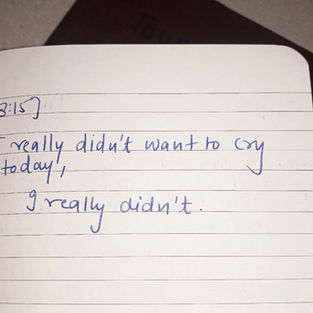 JOU
3:15]
I really didn't want to cry
today,
I really didn't.